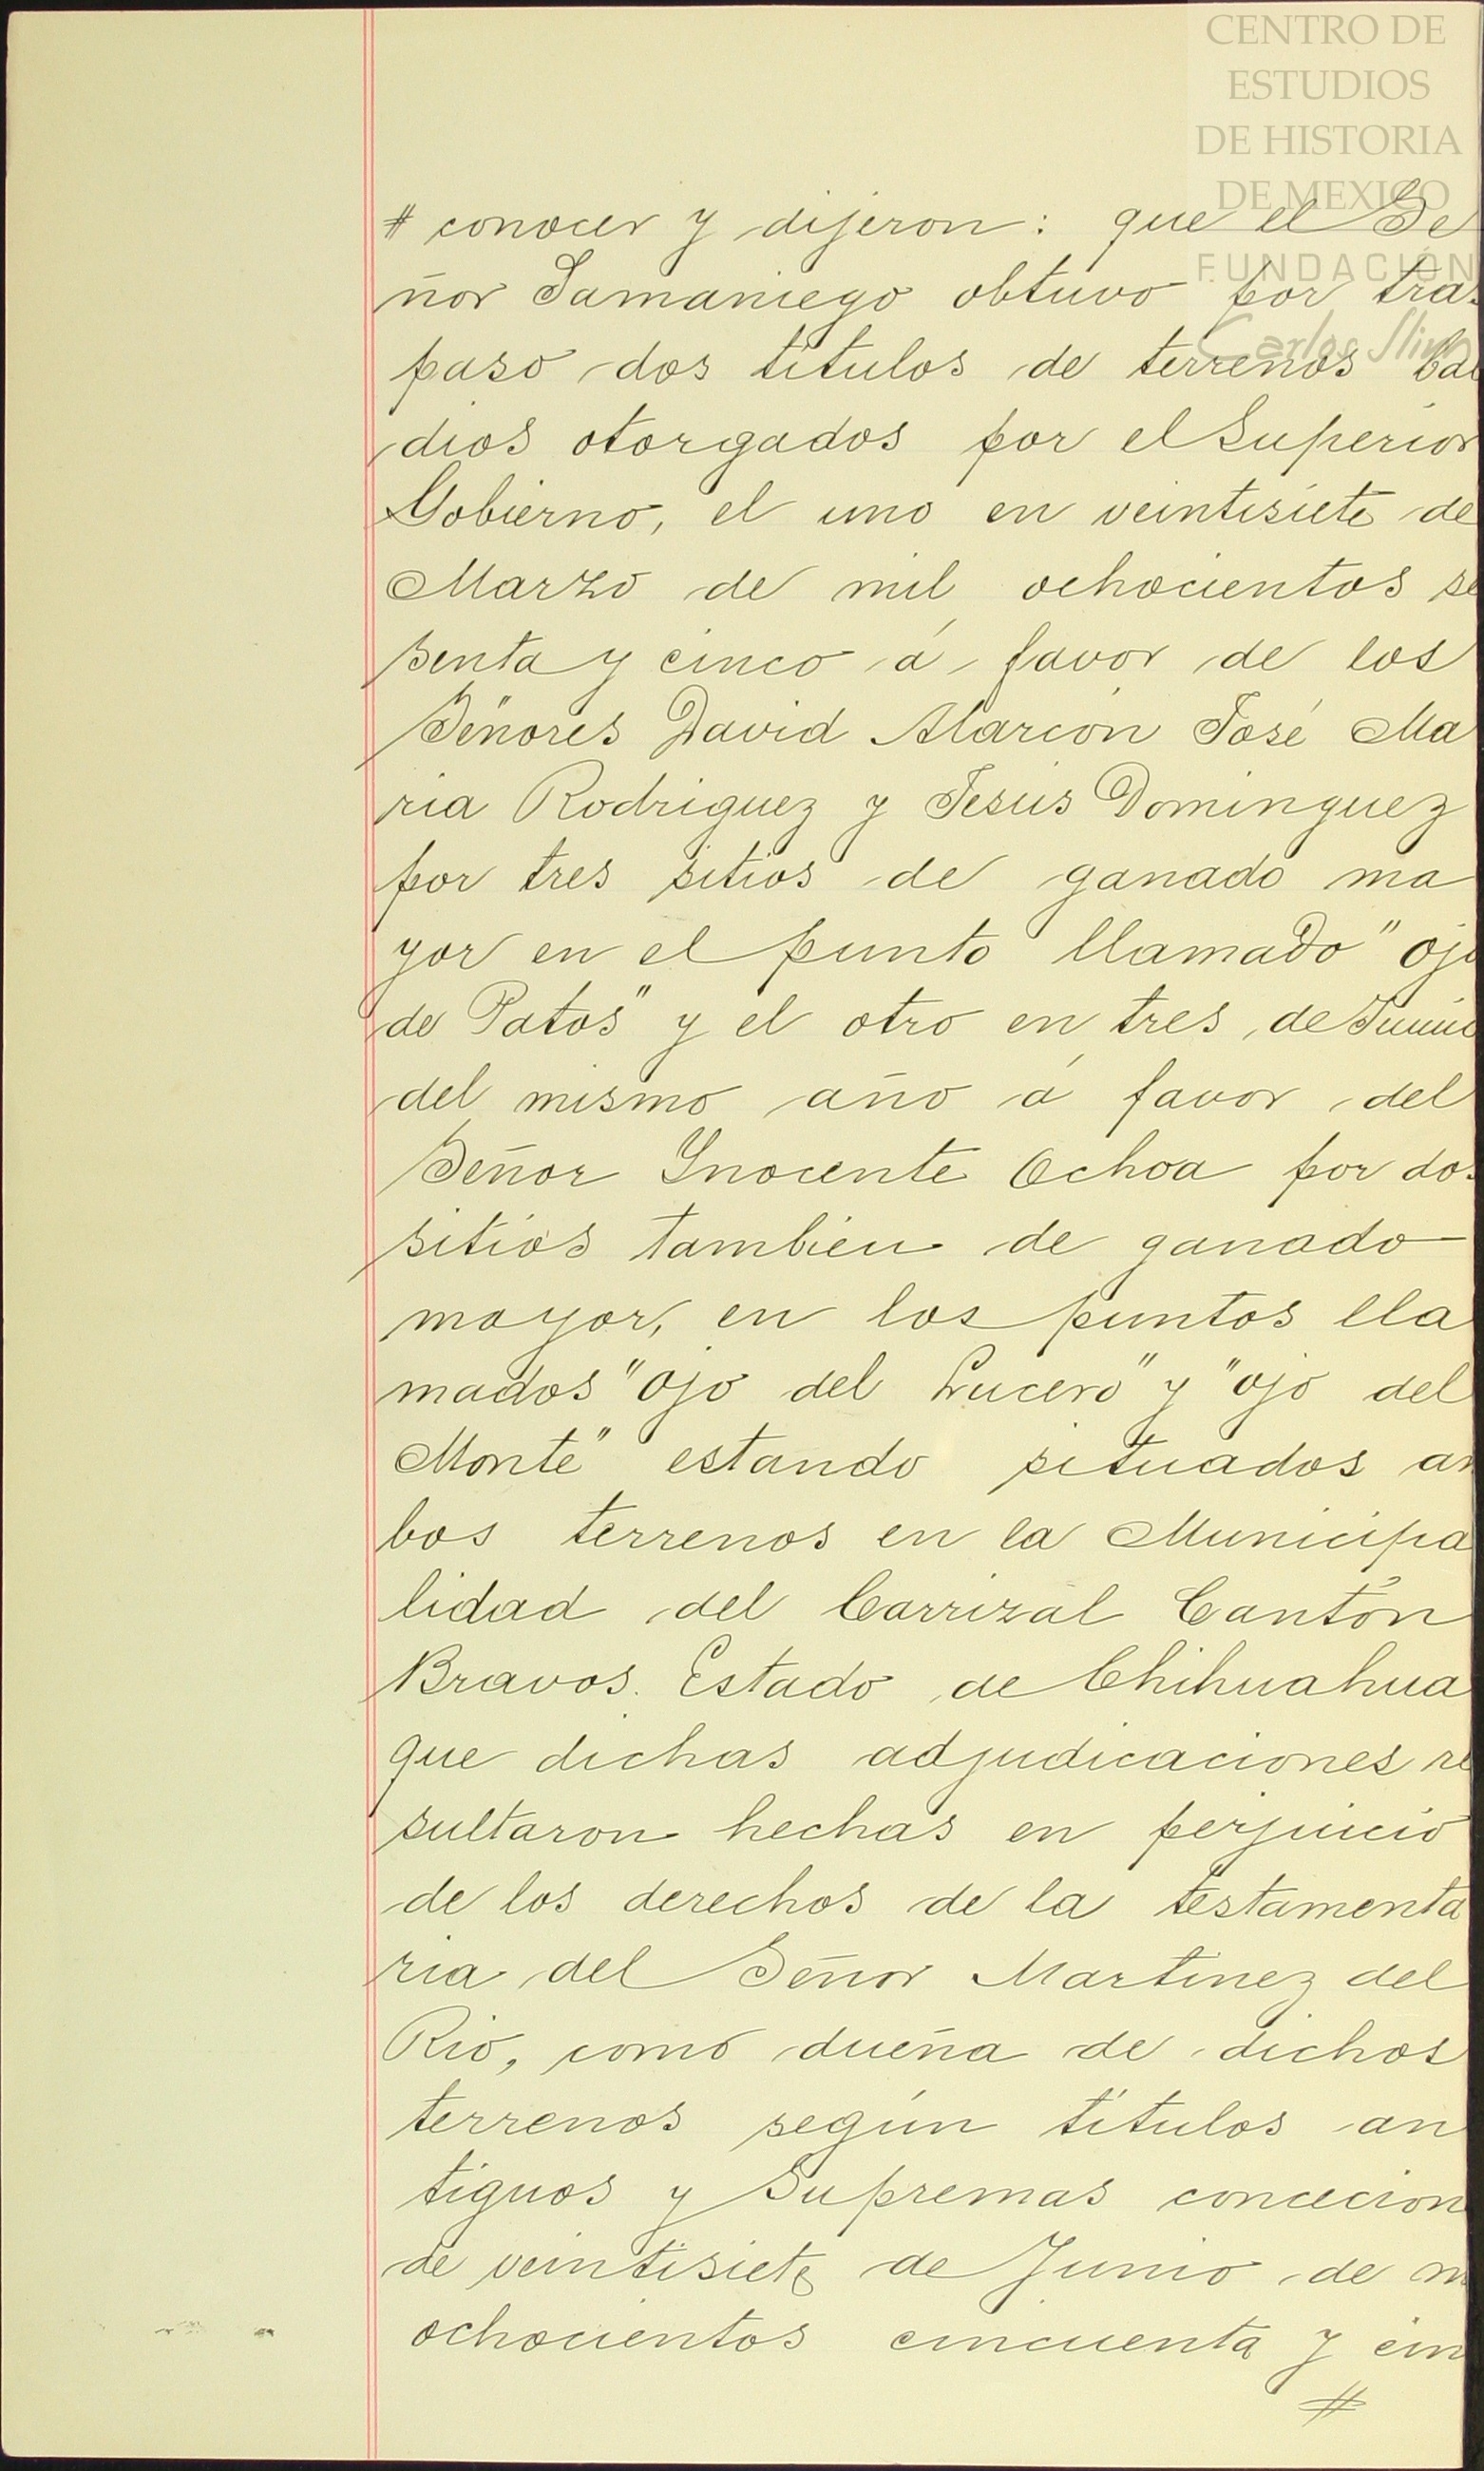 CENTRO DE
ESTUDIOS
DE HISTORIA
DE MEXICO
FUNDACIÓN
Carlos Slim
# conocer y dijeron: que el Se
ñor Samaniego obtuvo por tras
paso dos titulos de terrenos bal
dios otorgados por el Superior
Gobierno, el uno en veintisiete de
Marzo de mil ochocientos se
senta y cinco á favor de los
Señores David Alarcón José Ma
ria Rodriguez y Jesús Dominguez
por tres sitios de ganado ma
yor en el punto llamado "ojo
de Patos" y el otro en tres de Junio
del mismo año á favor del
Señor Ynocente Ochoa por dos
sitios tambien de ganado
mayor, en los puntos lla
mados "Ojo del Lucero" y "ojo del
Monte" estando situados am
bos terrenos en la Municipa
lidad del Carrizal Cantón
Bravos. Estado de Chihuahua
que dichas adjudicaciones re
sultaron hechas en perjuicio
de los derechos de la testamenta
ria del Señor Martinez del
Rio, como dueña de dichos
terrenos según títulos an
tiguos y Supremas concecion
de veintisiete de Junio de m
ochocientos cincuenta y cin
#